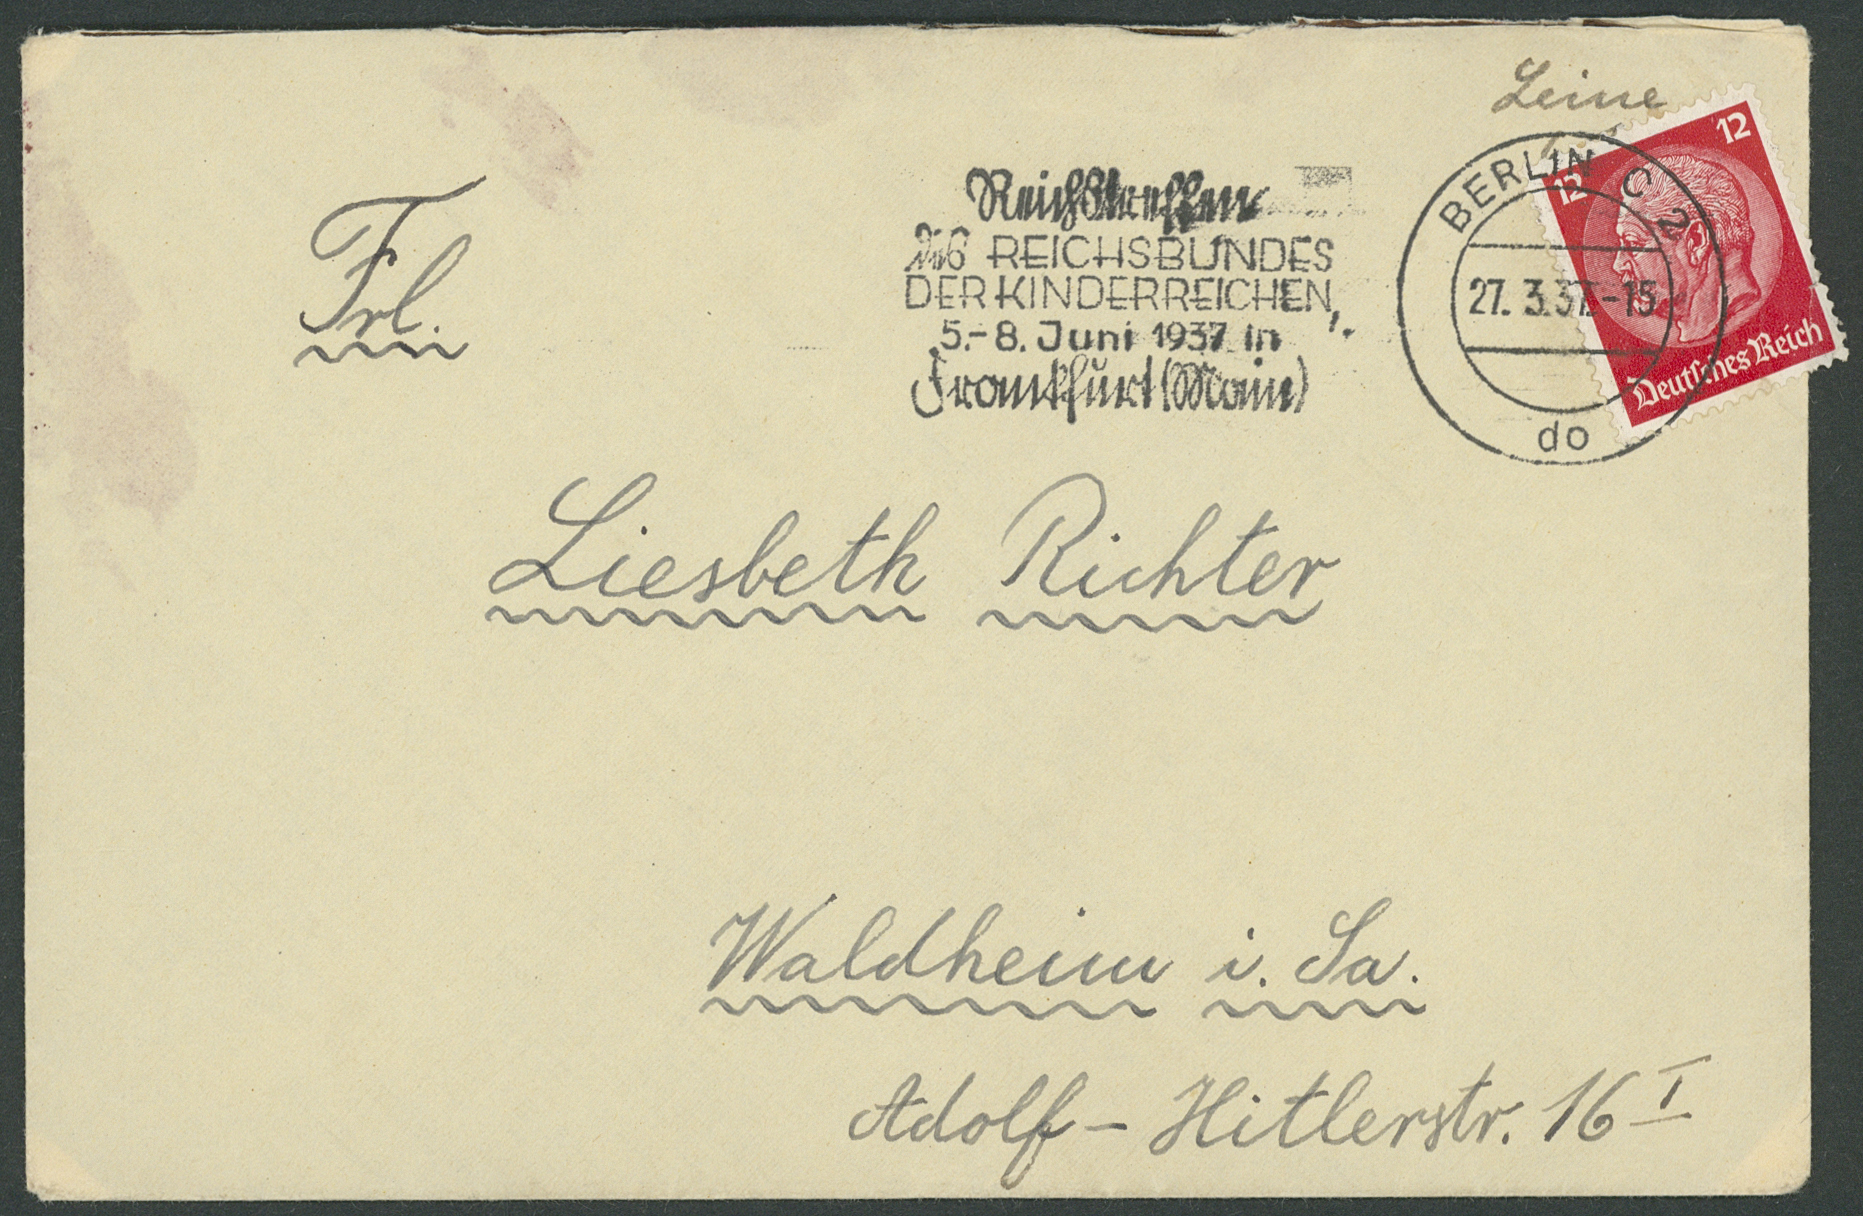 Leine
12
12
Deutsches Reich
BERLIN C 2
27. 3.37.-15
do
Reichstreffen
des REICHSBUNDES
DER KINDERREICHEN
5.-8. Juni 1937 in
Frankfurt (Main)
Frl.
Liesbeth Richter
Waldheim i. Sa.
Adolf-Hitlerstr. 16 I